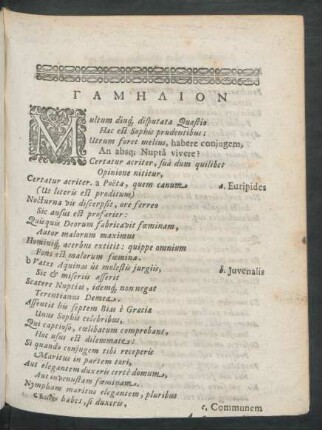 ΓΑΜΗΛΙΟΝ
Multum diuq́, disputata Quæstio
Hæc est Sophis prudentibus:
Utrum foret melius, habere conjugem,
An absq́; Nuptâ vivere?
Certatur acriter, suâ dum quilibet
Opinione nititur,
Certatur acriter. a Poëta, quem canum
a. Euripides
(Ut literis est proditum)
Nocturna vis discerpsit, ore ferreo
Sic ausus est profarier:
Quisquis Deorum fabricavit fœminam,
Autor malorum maximus
Hominiq́; acerbus extitit: quippe omnium
Fons est malorum fœmina.
b Vates Aquinas ūs molestis jurgiis,
b. Juvenalis
Sic & miseriis asserit
Scatere Nuptias, idemq́; non negat
Terentianus Demea.
Assentit his septem Bias è Græcia
Unus Sophis celebribus,
Qui captioso, cælibatum comprobans,
Hoc usus est dilemmate:
Si quando conjugem tibi receperis
Maritus in partem tori,
Aut elegantem duxeris certè domum,
Aut invenustam fœminam.
Nympham maritus elegantem, pluribus
habes, si duxeris,
c. Communem